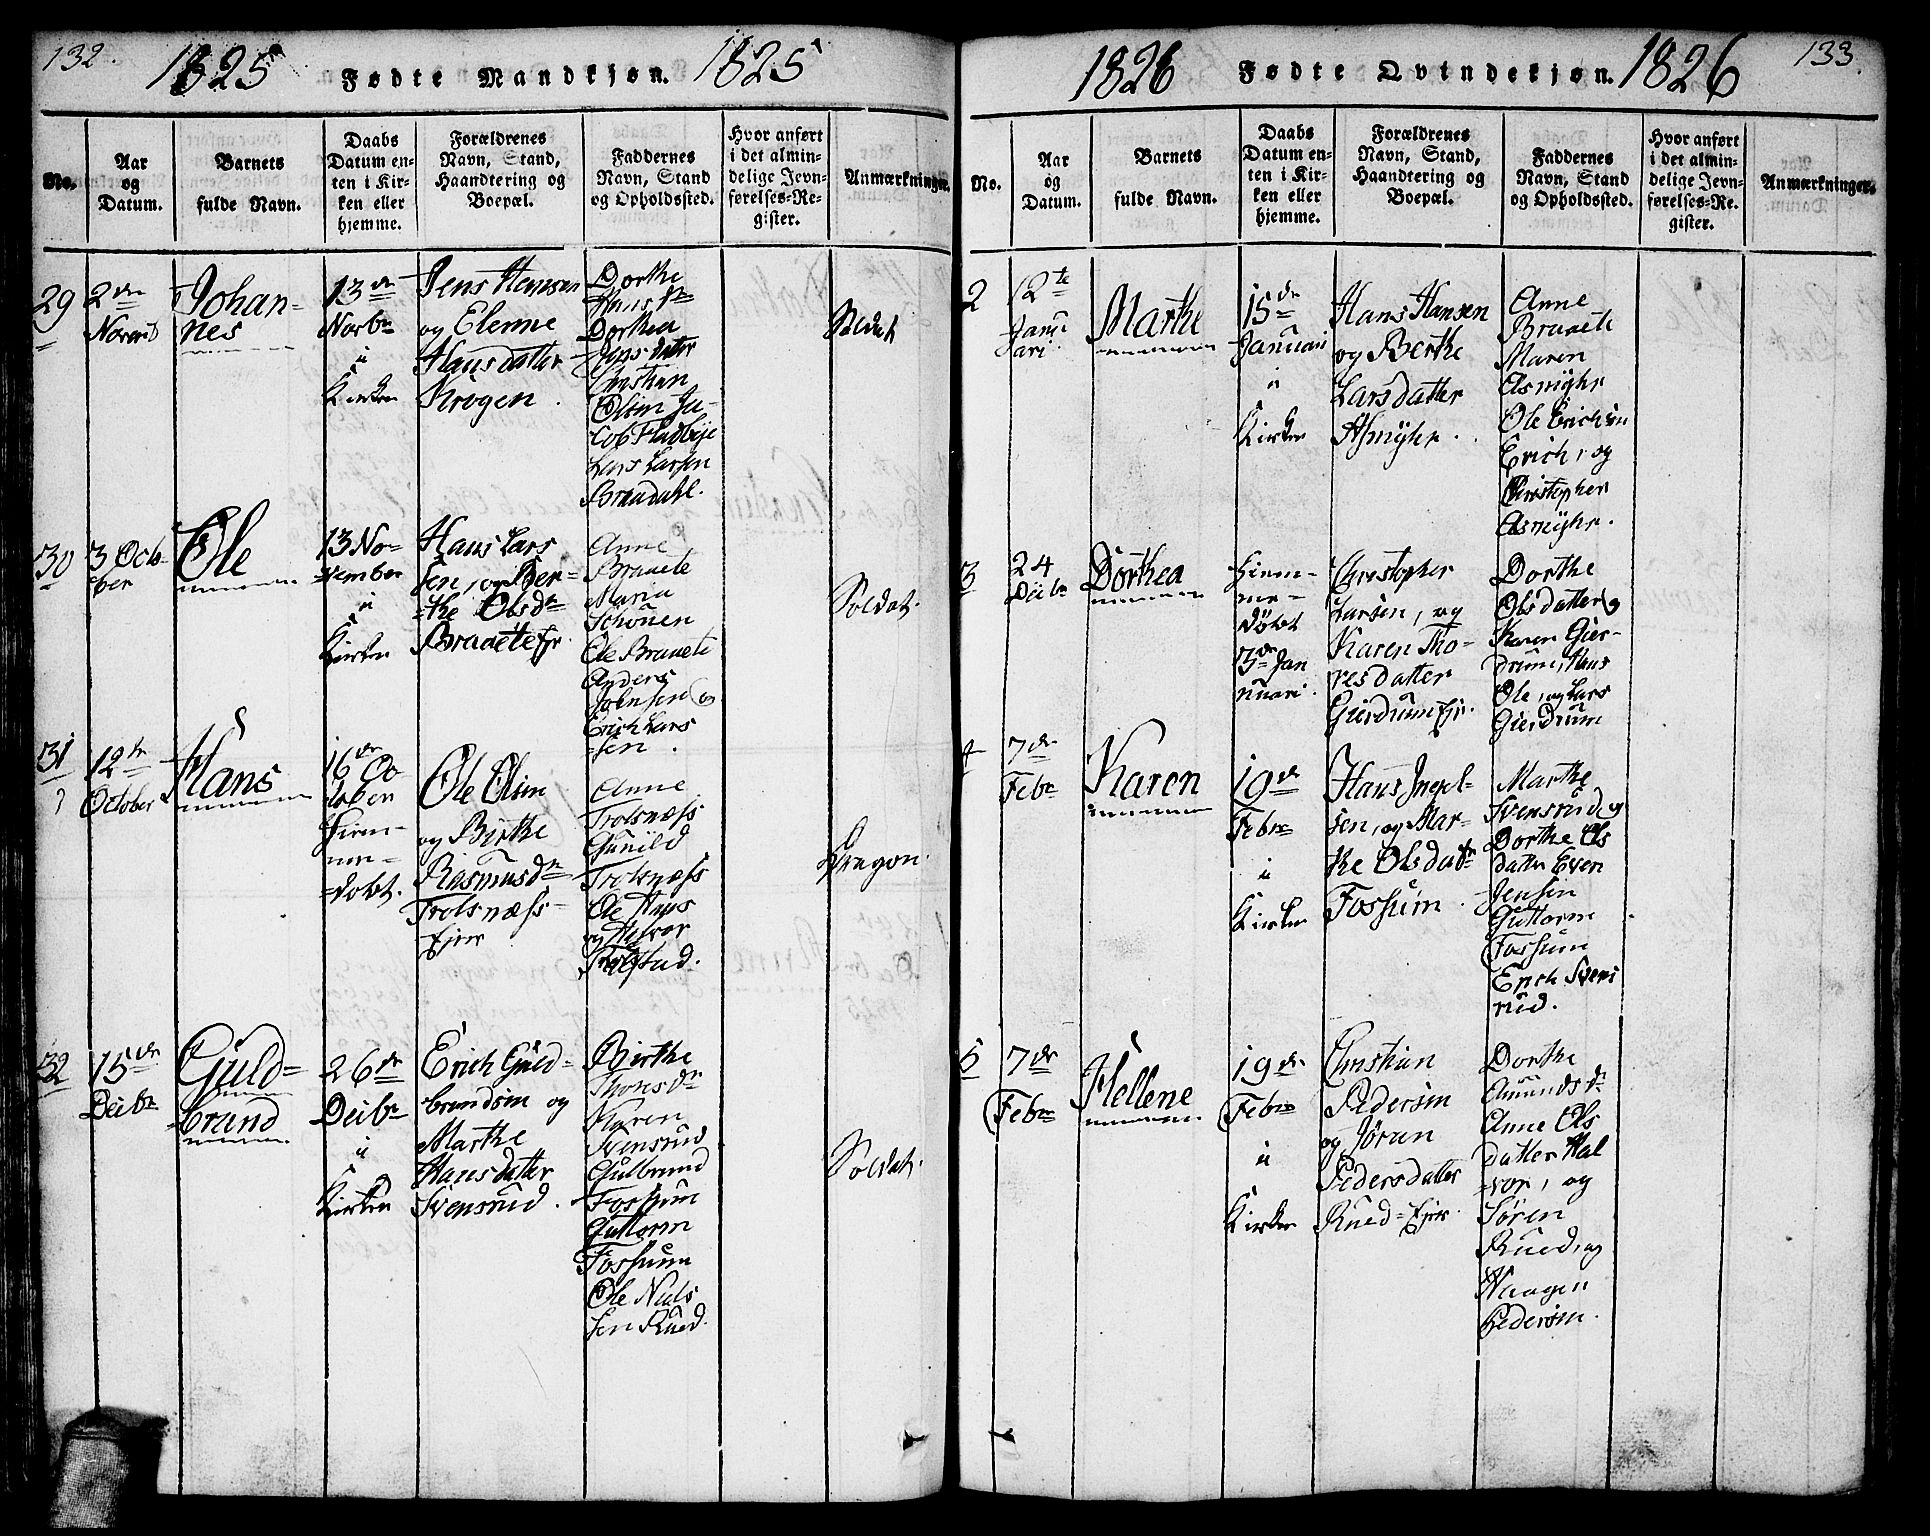 132.
1825
Fødte Mandkjøn.
1825
No.
Aar
og
Datum.
Barnets
fulde Navn.
Daabs
Datum en-
ten i Kir-
ken eller
hjemme.
Forældrenes
Navn, Stand,
Haandtering og
Boepæl.
Faddernes
Navn, Stand
og Opholdssted.
Hvor anført
i det almin-
delige Jevn-
førelses-Re-
gister.
Anmærkninger.
29
2den
Novemb
Johan-
nes
13de
Novbr
i
Kirken
Jens Hansen
og Elenne
Hansdatter
Krogen.
Dorthe
Hans Dr
Dorthea
Jensdatter
Christian
Olsen Ja-
cob Fladbye
Lars Larsen
Braadahl.
Soldat
30
3 Octo-
ber
Ole
13 No-
vember
i
Kirken
Hans Lars
sen, og Ber-
the Olsdr
Braaete Ejr.
Anne
Braaete
Maria
Schouen
Ole Braaete
Anders
Johnsen og
Erich Lars
sen.
Soldat.
31
12te
October
Hans
16de Oc
tober
Hiem-
me-
døbt.
Ole Olsen
og Birthe
Rasmusdr
Trolsnæss-
Ejer
Anne
Trolsnæss
Gunild
Trolsnæss
Ole Hans
og Halvor
Trolstad.
Dragon.
32
15de
Decbr
Guld-
brand
26de
Decbr
i
Kirken
Erich Guld-
brandsen og
Marthe
Hansdatter
Svensrud.
Birthe
Thorsdr
Karen
Svensrud
Gulbrand
Fossum
Guttorm
Fossum
Ole Niels
sen Rued.
Soldat.
1826
Fødte Qvindekjøn.
1826
133.
No.
Aar
og
Datum.
Barnets
fulde Navn.
Daabs
Datum en-
ten i Kir-
ken eller
hjemme.
Forældrenes
Navn, Stand,
Haandtering og
Boepæl.
Faddernes
Navn, Stand
og Opholdssted.
Hvor anført
i det almin-
delige Jevn-
førelses-Re-
gister.
Anmærkninger.
2
12te
Janu
ari
Marthe
15de
Januari
i
Kirken
Hans Hansen
og Berthe
Larsdatter
Asmyhr.
Anne
Braaete
Maren
Asmyhr
Ole Erichsen
Erich, og
Christopher
Asmyhr.
3
24
Decbr
Dorthea
Hiem-
me-
døbt
3de Jan
nuari.
Christopher
Larsen, og
Karen Tho-
resdatter
Gierdrum Ejr.
Dorthe
Olsdatter og
Karen Gier-
drum, Hans
Ole, og Lars
Gierdrum
4
7de
Febr
Karen
19de
Febr
i
Kirken
Hans Ingel-
sen, og Mar-
the Olsdatr
Fossum.
Marthe
Svensrud og
Dorthe Ols
datter Even
Jensen
Guttorm
Fossum
Erich Svens
rud.
5
7de
Febr
Hellene
19de
Febr
i
Kirken
Christian
Pedersen
og Jøran
Pedersdatter
Rued-Ejer.
Dorthe
Amundsdr
Anne Ols
datter Hal
vor, og
Søren
Rued, og
Haagen
Pedersen.